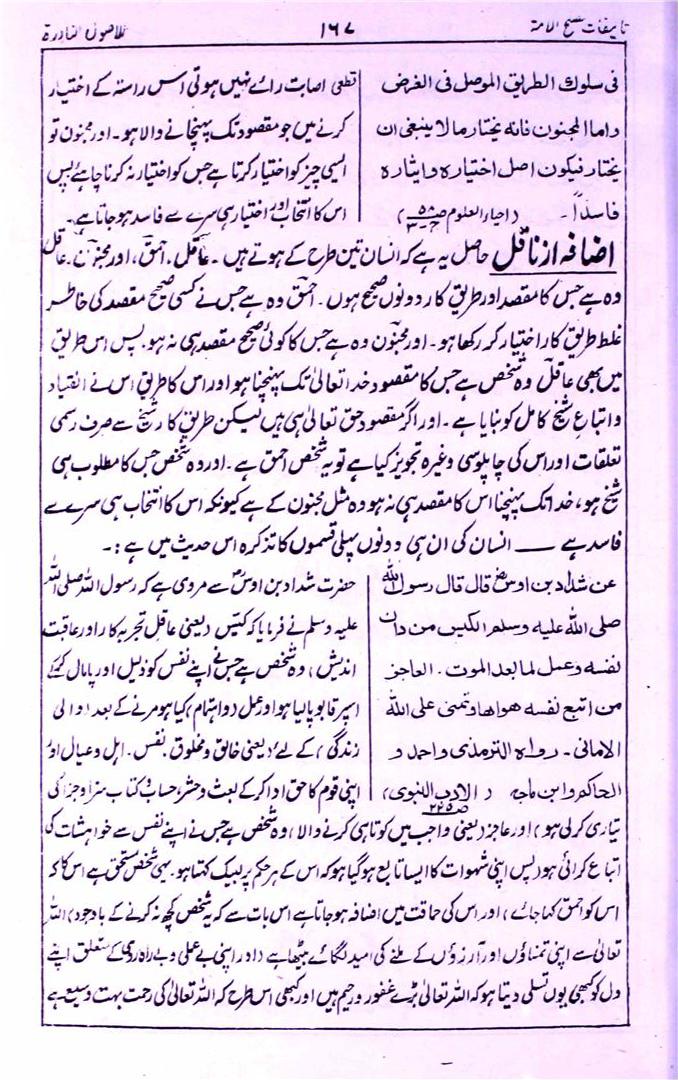 تالیفات مصلح الامۃ ۱۶۷ الاصول النادرۃ
فی سلوک الطریق الموصل فی الغرض
واما المجنون فانه یختار مالا ینبغی ان
یختار فیکون اصل اختیاره وایثاره
فاسداً۔ (احیاء العلوم ص۵۸ ج۳)
قطعی اصابت رائے نہیں ہوتی اس راستہ کے اختیار
کرنے میں جو مقصود تک پہنچانے والا ہو۔ اور مجنون تو
ایسی چیز کو اختیار کرتا ہے جس کو اختیار نہ کرنا چاہئے پس
اس کا انتخاب اور اختیار ہی سرے سے فاسد ہو جاتا ہے۔
اضافہ از ناقل حاصل یہ ہے کہ انسان تین طرح کے ہوتے ہیں۔ عاقل، احمق، اور مجنون۔ عاقل
وہ ہے جس کا مقصد اور طریق کار دونوں صحیح ہوں۔ احمق وہ ہے جس نے کسی صحیح مقصد کی خاطر
غلط طریق کار اختیار کر رکھا ہو۔ اور مجنون وہ ہے جس کا کوئی صحیح مقصد ہی نہ ہو، پس اس طریق
میں بھی عاقل وہ شخص ہے جس کا مقصود خدا تعالیٰ تک پہنچنا ہو اور اس کا طریق اس نے انقیاد
و اتباعِ شیخ کامل کو بنایا ہے۔ اور اگر مقصود حق تعالیٰ ہی ہیں لیکن طریق کار شیخ سے صرف رسمی
تعلقات اور اس کی چاپلوسی وغیرہ تجویز کیا ہے تو یہ شخص احمق ہے۔ اور وہ شخص جس کا مطلوب ہی
شیخ ہو، خدا تک پہنچنا اس کا مقصد ہی نہ ہو وہ مثل مجنون کے ہے کیونکہ اس کا انتخاب ہی سرے سے
فاسد ہے ـــــ انسان کی ان ہی دونوں پہلی قسموں کا تذکرہ اس حدیث میں ہے:۔
عن شداد بن اوس رض قال قال رسول اللہ
صلی اللہ علیه وسلم الکیس من دان
نفسه وعمل لما بعد الموت۔ العاجز
من اتبع نفسه هواها وتمنی علی اللہ
الامانی۔ رواه الترمذی واحمد و
الحاکم وابن ماجه (الادب النبوی ص۲۲۵)
حضرت شداد بن اوس رض سے مروی ہے کہ رسول اللہ صلی اللہ
علیہ وسلم نے فرمایا کہ کیّس (یعنی عاقل تجربہ کار اور عاقبت
اندیش) وہ شخص ہے جس نے اپنے نفس کو ذلیل اور پامال کر کے
اس پر قابو پا لیا ہو اور عمل (واہتمام) کیا ہو مرنے کے بعد (والی
زندگی) کے لئے (یعنی خالق و مخلوق، نفس۔ اہل و عیال اور
اپنی قوم کا حق ادا کر کے بعث و حشر، حساب و کتاب سزا و جزا کی
تیاری کر لی ہو) اور عاجز (یعنی واجب میں کوتاہی کرنے والا) وہ شخص ہے جس نے اپنے نفس سے خواہشات کی
اتباع کرائی ہو (پس اپنی شہوات کا ایسا تابع ہو گیا ہو کہ اس کے ہر حکم پر لبیک کہتا ہو۔ یہی شخص مستحق ہے اس کا کہ
اس کو احمق کہا جائے) اور اس کی حماقت میں اضافہ ہو جاتا ہے اس بات سے کہ یہ شخص کچھ نہ کرنے کے باوجود) اللہ
تعالیٰ سے اپنی تمناؤں اور آرزوؤں کے ملنے کی امید لگائے بیٹھا ہے (اور اپنی بے عملی و بے راہ روی کے متعلق اپنے
دل کو کبھی یوں تسلی دیتا ہو کہ اللہ تعالیٰ بڑے غفور و رحیم ہیں اور کبھی اس طرح کہ اللہ تعالیٰ کی رحمت بہت وسیع ہے